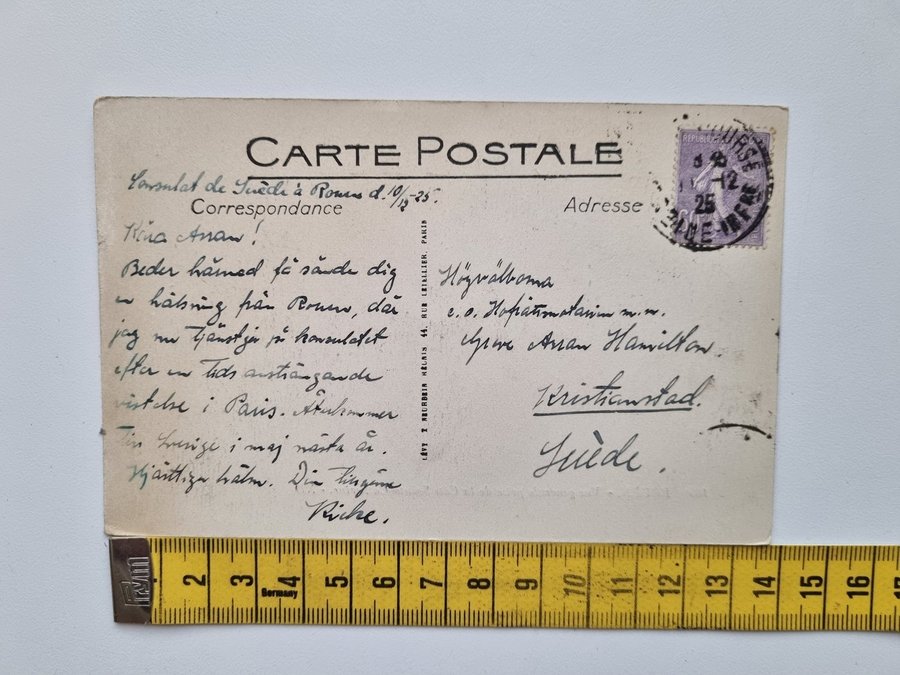 CARTE POSTALE
Consulat de Suède à Rouen d. 10/12-25.
Correspondance
Adresse
Kära Arran!
Beder härmed få sände dig
en hälsning från Rouen, där
jag nu tjänstgör på konsulatet
efter en tids ansträngande
vistelse i Paris. Återkommer
till Sverige i maj nästa år.
Hjärtliga hälsn. Din tillgifne
LÉVY & NEURDEIN RÉUNIS 44, RUE LETELLIER, PARIS
Högvälborna
e.o. Hofrättsnotarien m.m.
Greve Arran Hamilton.
Kristianstad.
Suède.
12
25
2 3 4 5 6 7 8 9 10 11 12 13 14 15 16
Germany